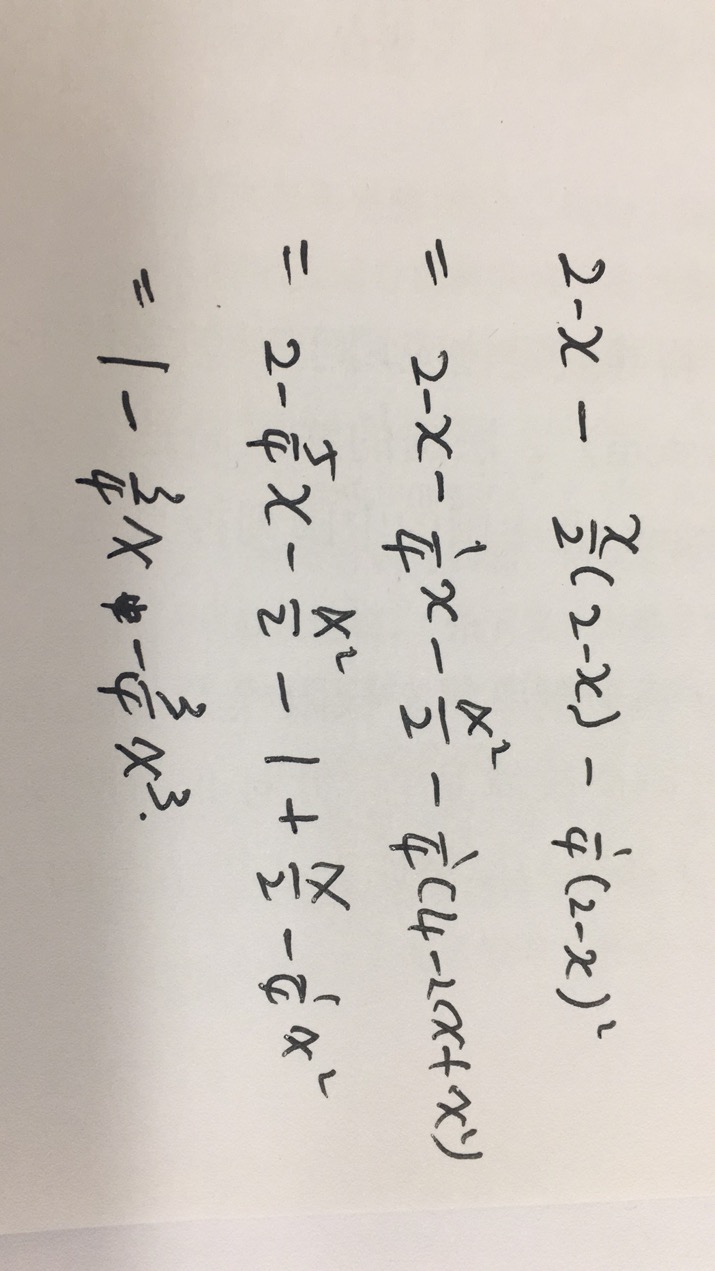 2-x - x/2(2-x) - 1/4(2-x)²
= 2-x - 1/4x - x²/2 - 1/4(4-2x+x²)
= 2 - 5/4x - x²/2 - 1 + x/2 - 1/4x²
= 1 - 3/4x - 3/4x³.